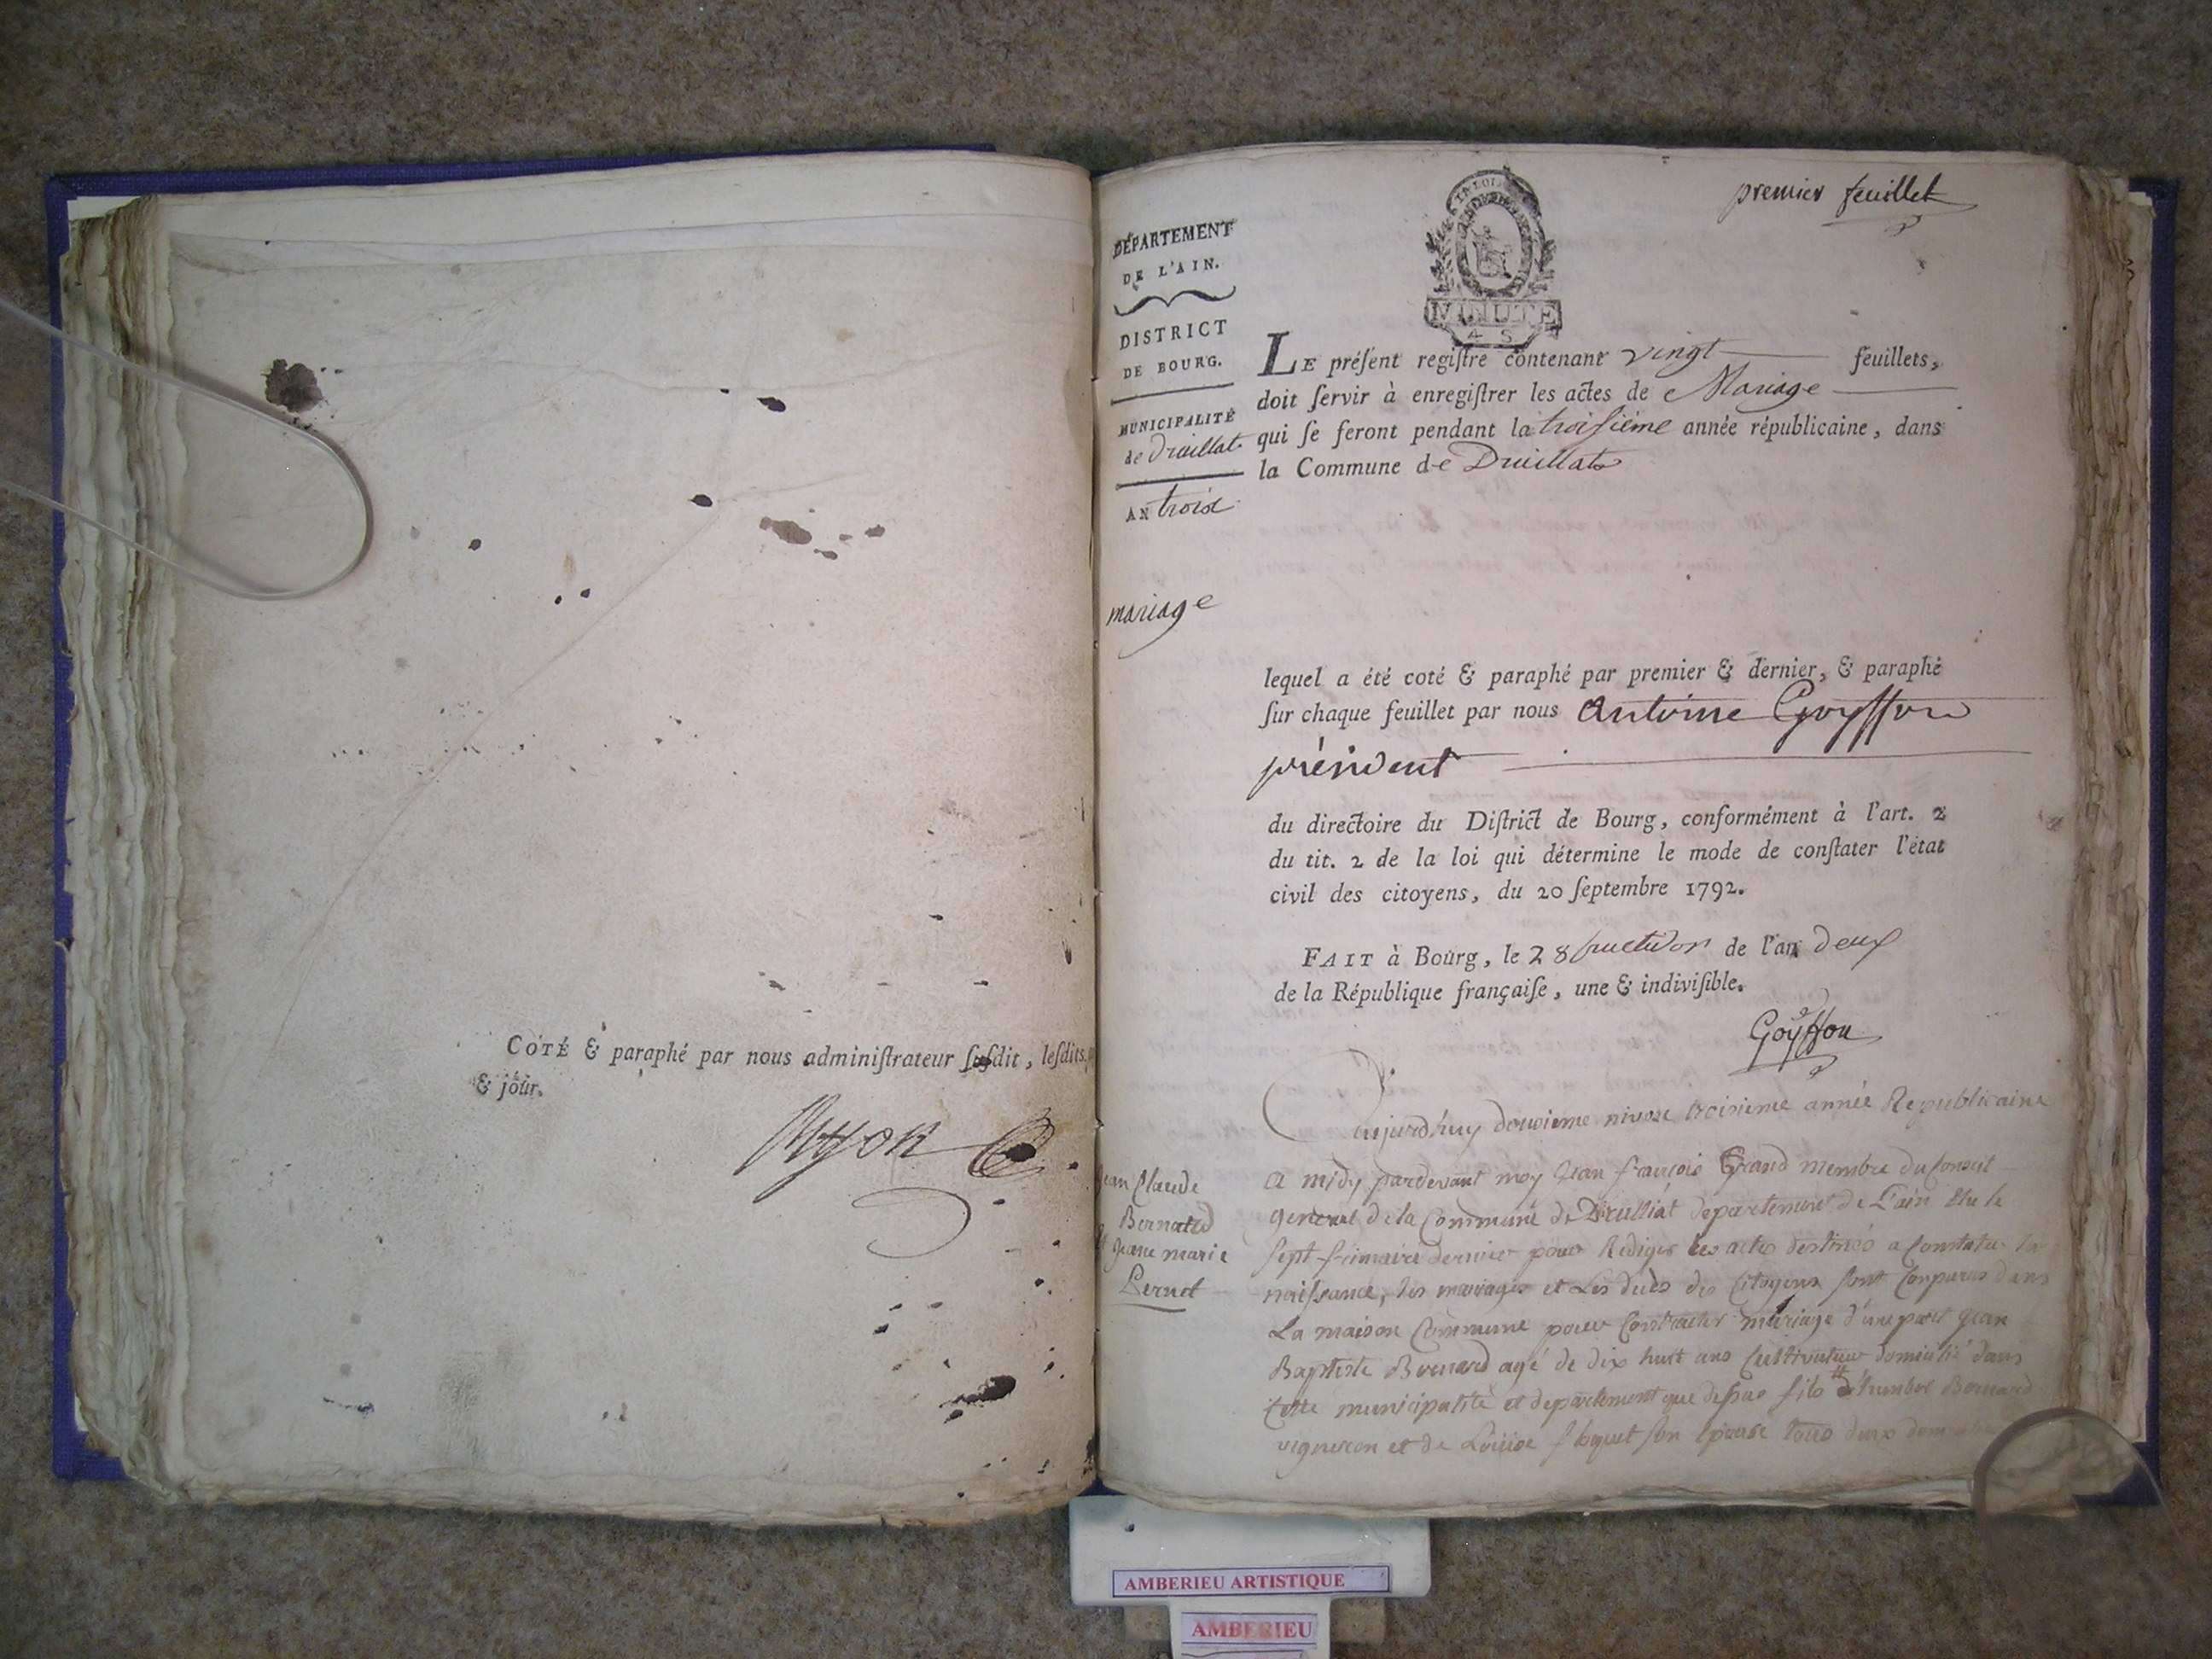 COTÉ & paraphé par nous adminiſtrateur ſuſdit, leſdits
& jour.
Ryon
premier feuillet
LA LOI
MINUTE
4 S
DÉPARTEMENT
DE L'AIN.
DISTRICT
DE BOURG.
MUNICIPALITÉ
de Druillat
AN troix
LE préſent regiſtre contenant vingt feuillets,
doit ſervir à enregiſtrer les actes de Mariage
qui ſe feront pendant la troiſiéme année républicaine, dans
la Commune de Druillat
mariage
lequel a été coté & paraphé par premier & dernier, & paraphé
ſur chaque feuillet par nous Antoine Goyffon
président
du directoire du Diſtrict de Bourg, conformément à l'art. 2
du tit. 2 de la loi qui détermine le mode de conſtater l'état
civil des citoyens, du 20 ſeptembre 1792.
FAIT à Bourg, le 28 fructidor de l'an deux
de la République françaiſe, une & indiviſible.
Goyffon
aujourd'huy douzieme nivose troisieme année Republicaine
Jean Claude
Bernard
Jeane marie
Pernet
a midy pardevant moy Jean françois Grand membre du Conseil
general de la Commune de Drulliat departement de L'ain Elu le
sept frimaire dernier pour Rediger les actes destinés a Constater la
naissance, les mariages et Les décès des Citoyens sont Comparus dans
La maison Commune pour Contracter mariage d'une part Jean
Baptiste Bernard agé de dix huit ans Cultivateur domicilié dans
Cette municipalité et departement que dessus fils d'humbert Bernard
vigneron et de Loüise son épouse tous deux
AMBERIEU ARTISTIQUE
AMBERIEU